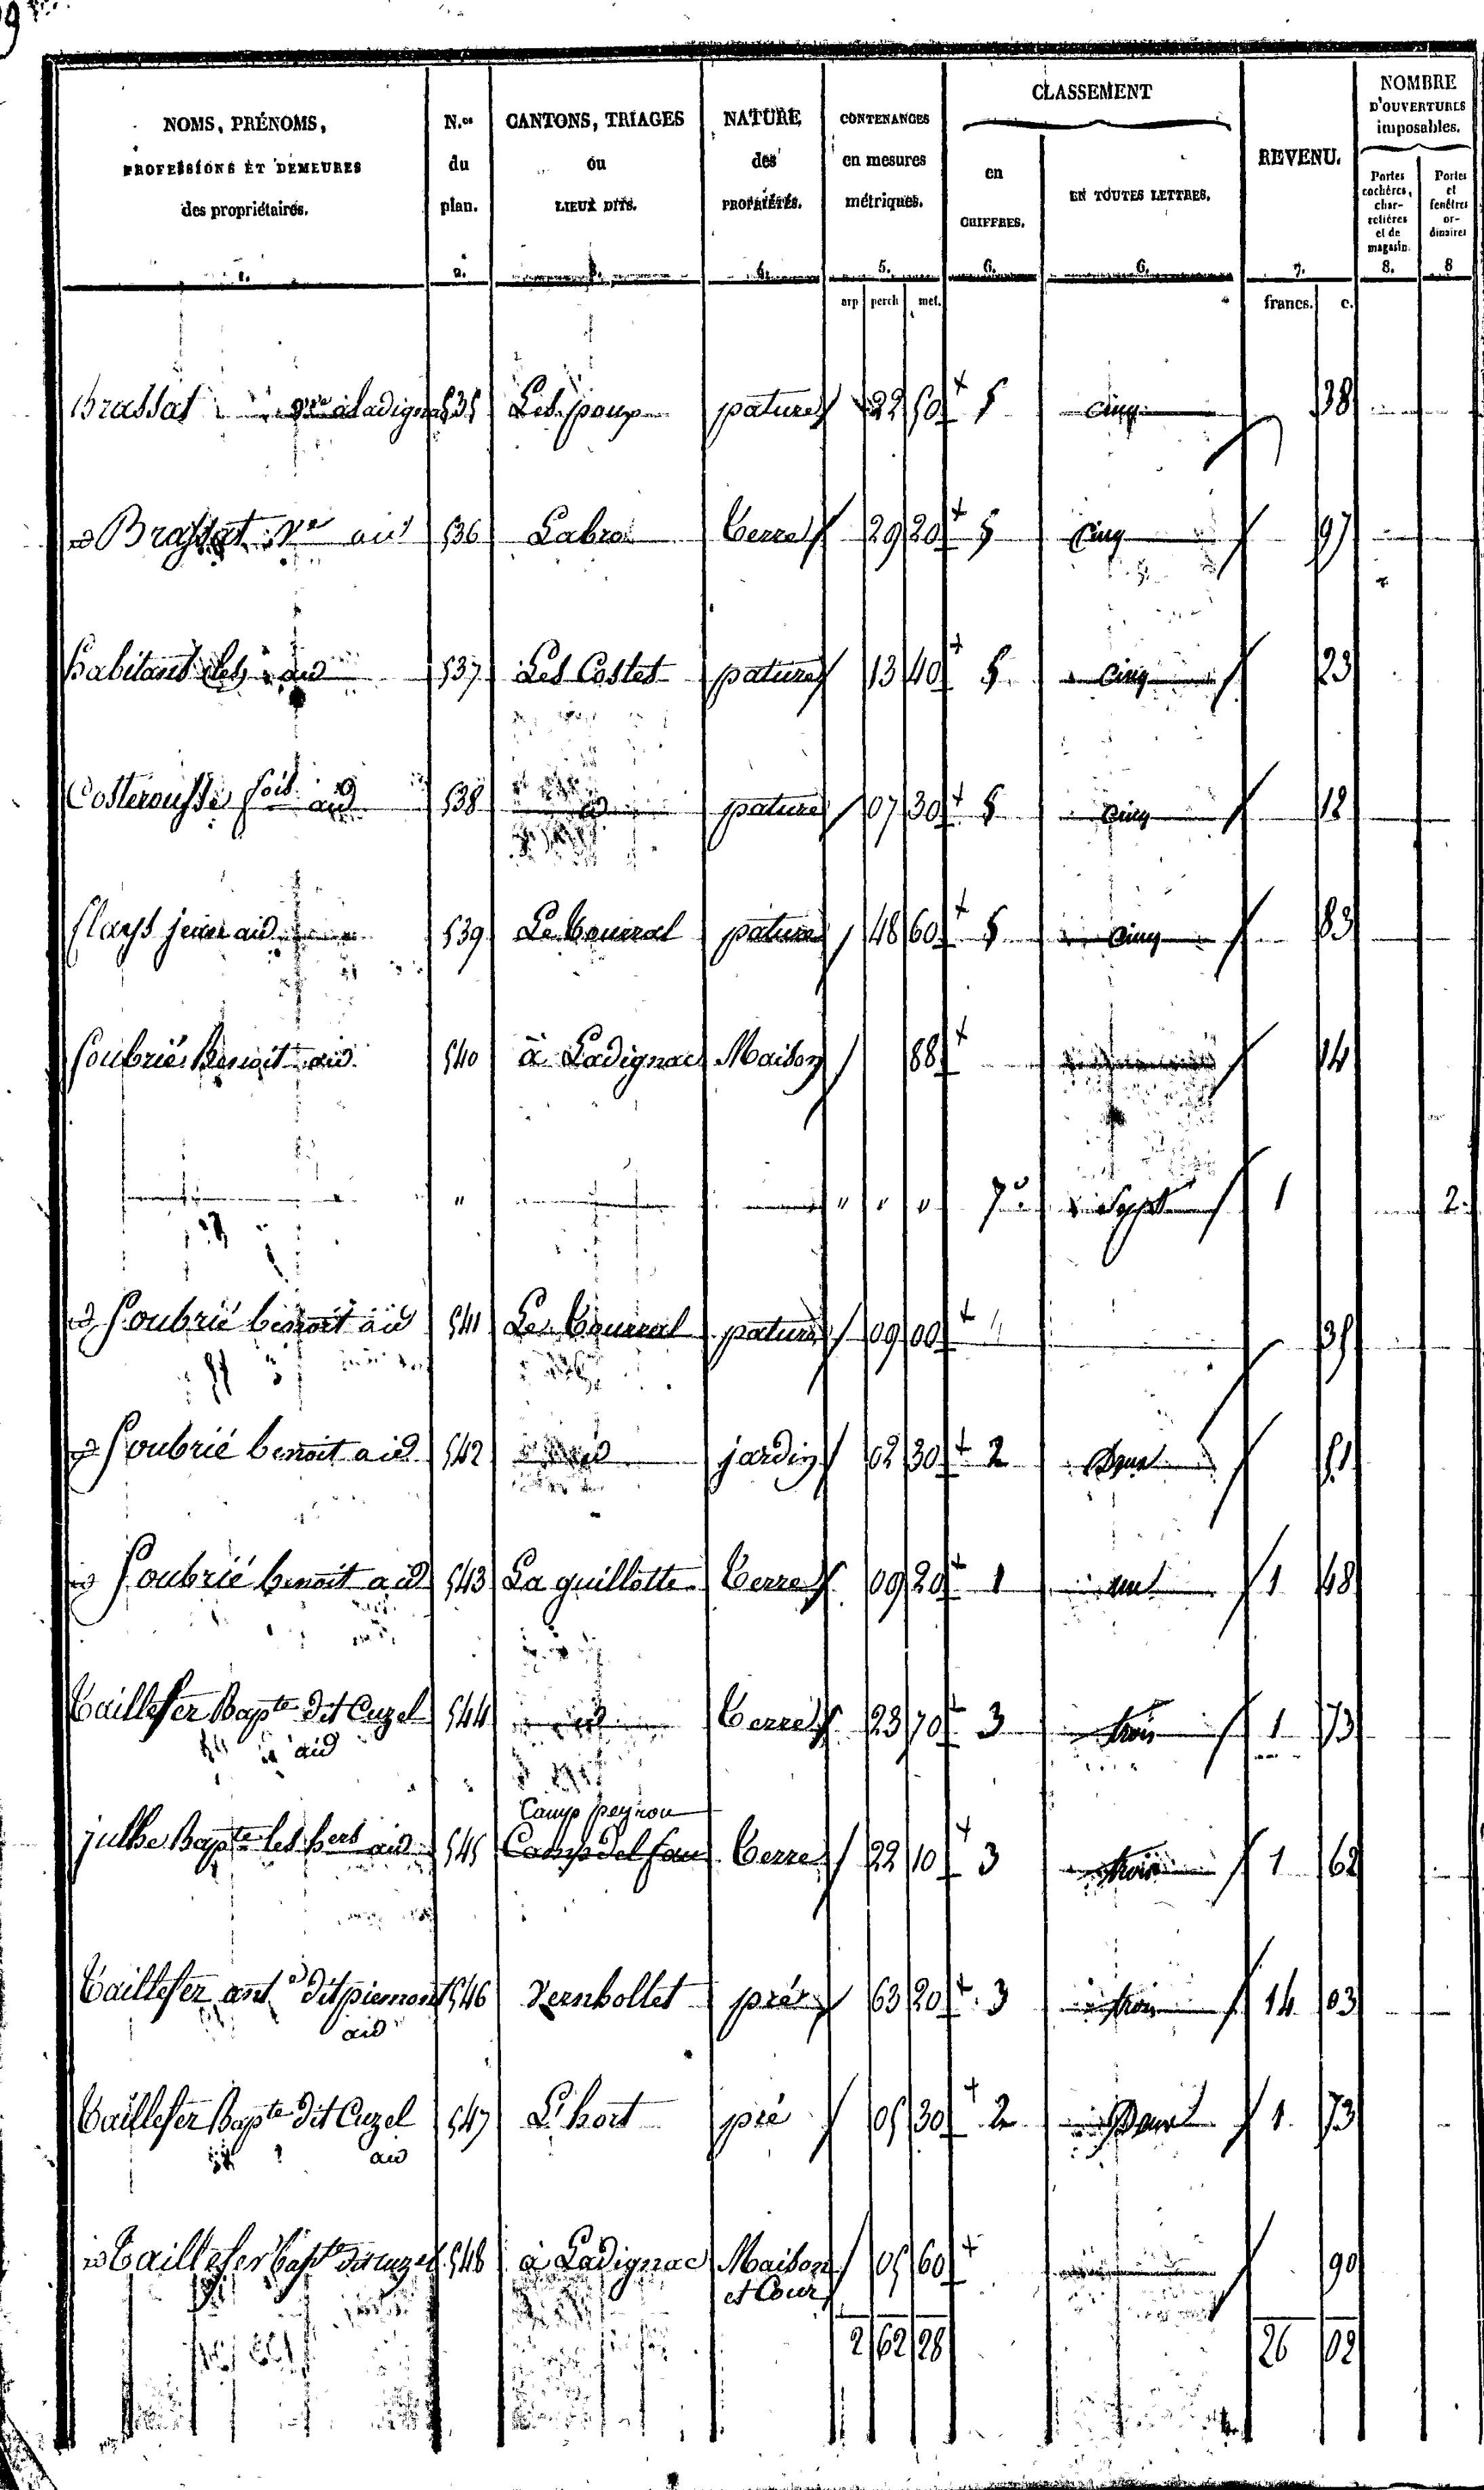 NOMS, PRÉNOMS, PROFESSIONS ET DEMEURES des propriétaires. 1.
N.os du plan. 2.
CANTONS, TRIAGES ou LIEUX DITS. 3.
NATURE des PROPRIÉTÉS. 4.
CONTENANCES en mesures métriques. 5.
CLASSEMENT
en CHIFFRES. 6.
EN TOUTES LETTRES. 6.
REVENU. 7.
NOMBRE D'OUVERTURES imposables.
Portes cochères, charretières et de magasin. 8.
Portes et fenêtres ordinaires 8
arp perch met. francs. c.
Brassat à Ladignac 535 Les pouy pature 22 50 5 cinq 38
Brassat Ve aid 536 Labro terre 29 20 5 cinq 97
habitants (les) aid 537 Les Costes pature 13 40 5 cinq 23
Costerousse fois aid 538 id pature 07 30 5 cinq 12
Clays jeune aid 539 Le Courral pature 48 60 5 cinq 83
Soubrié Benoit aid 540 à Ladignac Maison 88 14
" " " " 7e Sept 1 2
id Soubrié benoit aid 541 Le Courral pature 09 00 35
id Soubrié benoit aid 542 id jardin 02 30 2 Deux 51
id Soubrié benoit aid 543 La guillotte terre 09 20 1 un 1 48
Taillefer Bapte dit Cuzel 544 id terre 23 70 3 trois 1 73
aid
Camp peyrou
julhe Bapte les hers aid 545 Camp del fau terre 22 10 3 trois 1 62
Taillefer ant dit piemont 546 Vernhollet pré 63 20 3 trois 14 03
aid
Taillefer Bapte dit Cuzel 547 L'hort pré 05 30 2 Deux 1 73
aid
id Taillefer Bapte dit cuzel 548 à Ladignac Maison 05 60 90
et Cour
2 62 28 26 02